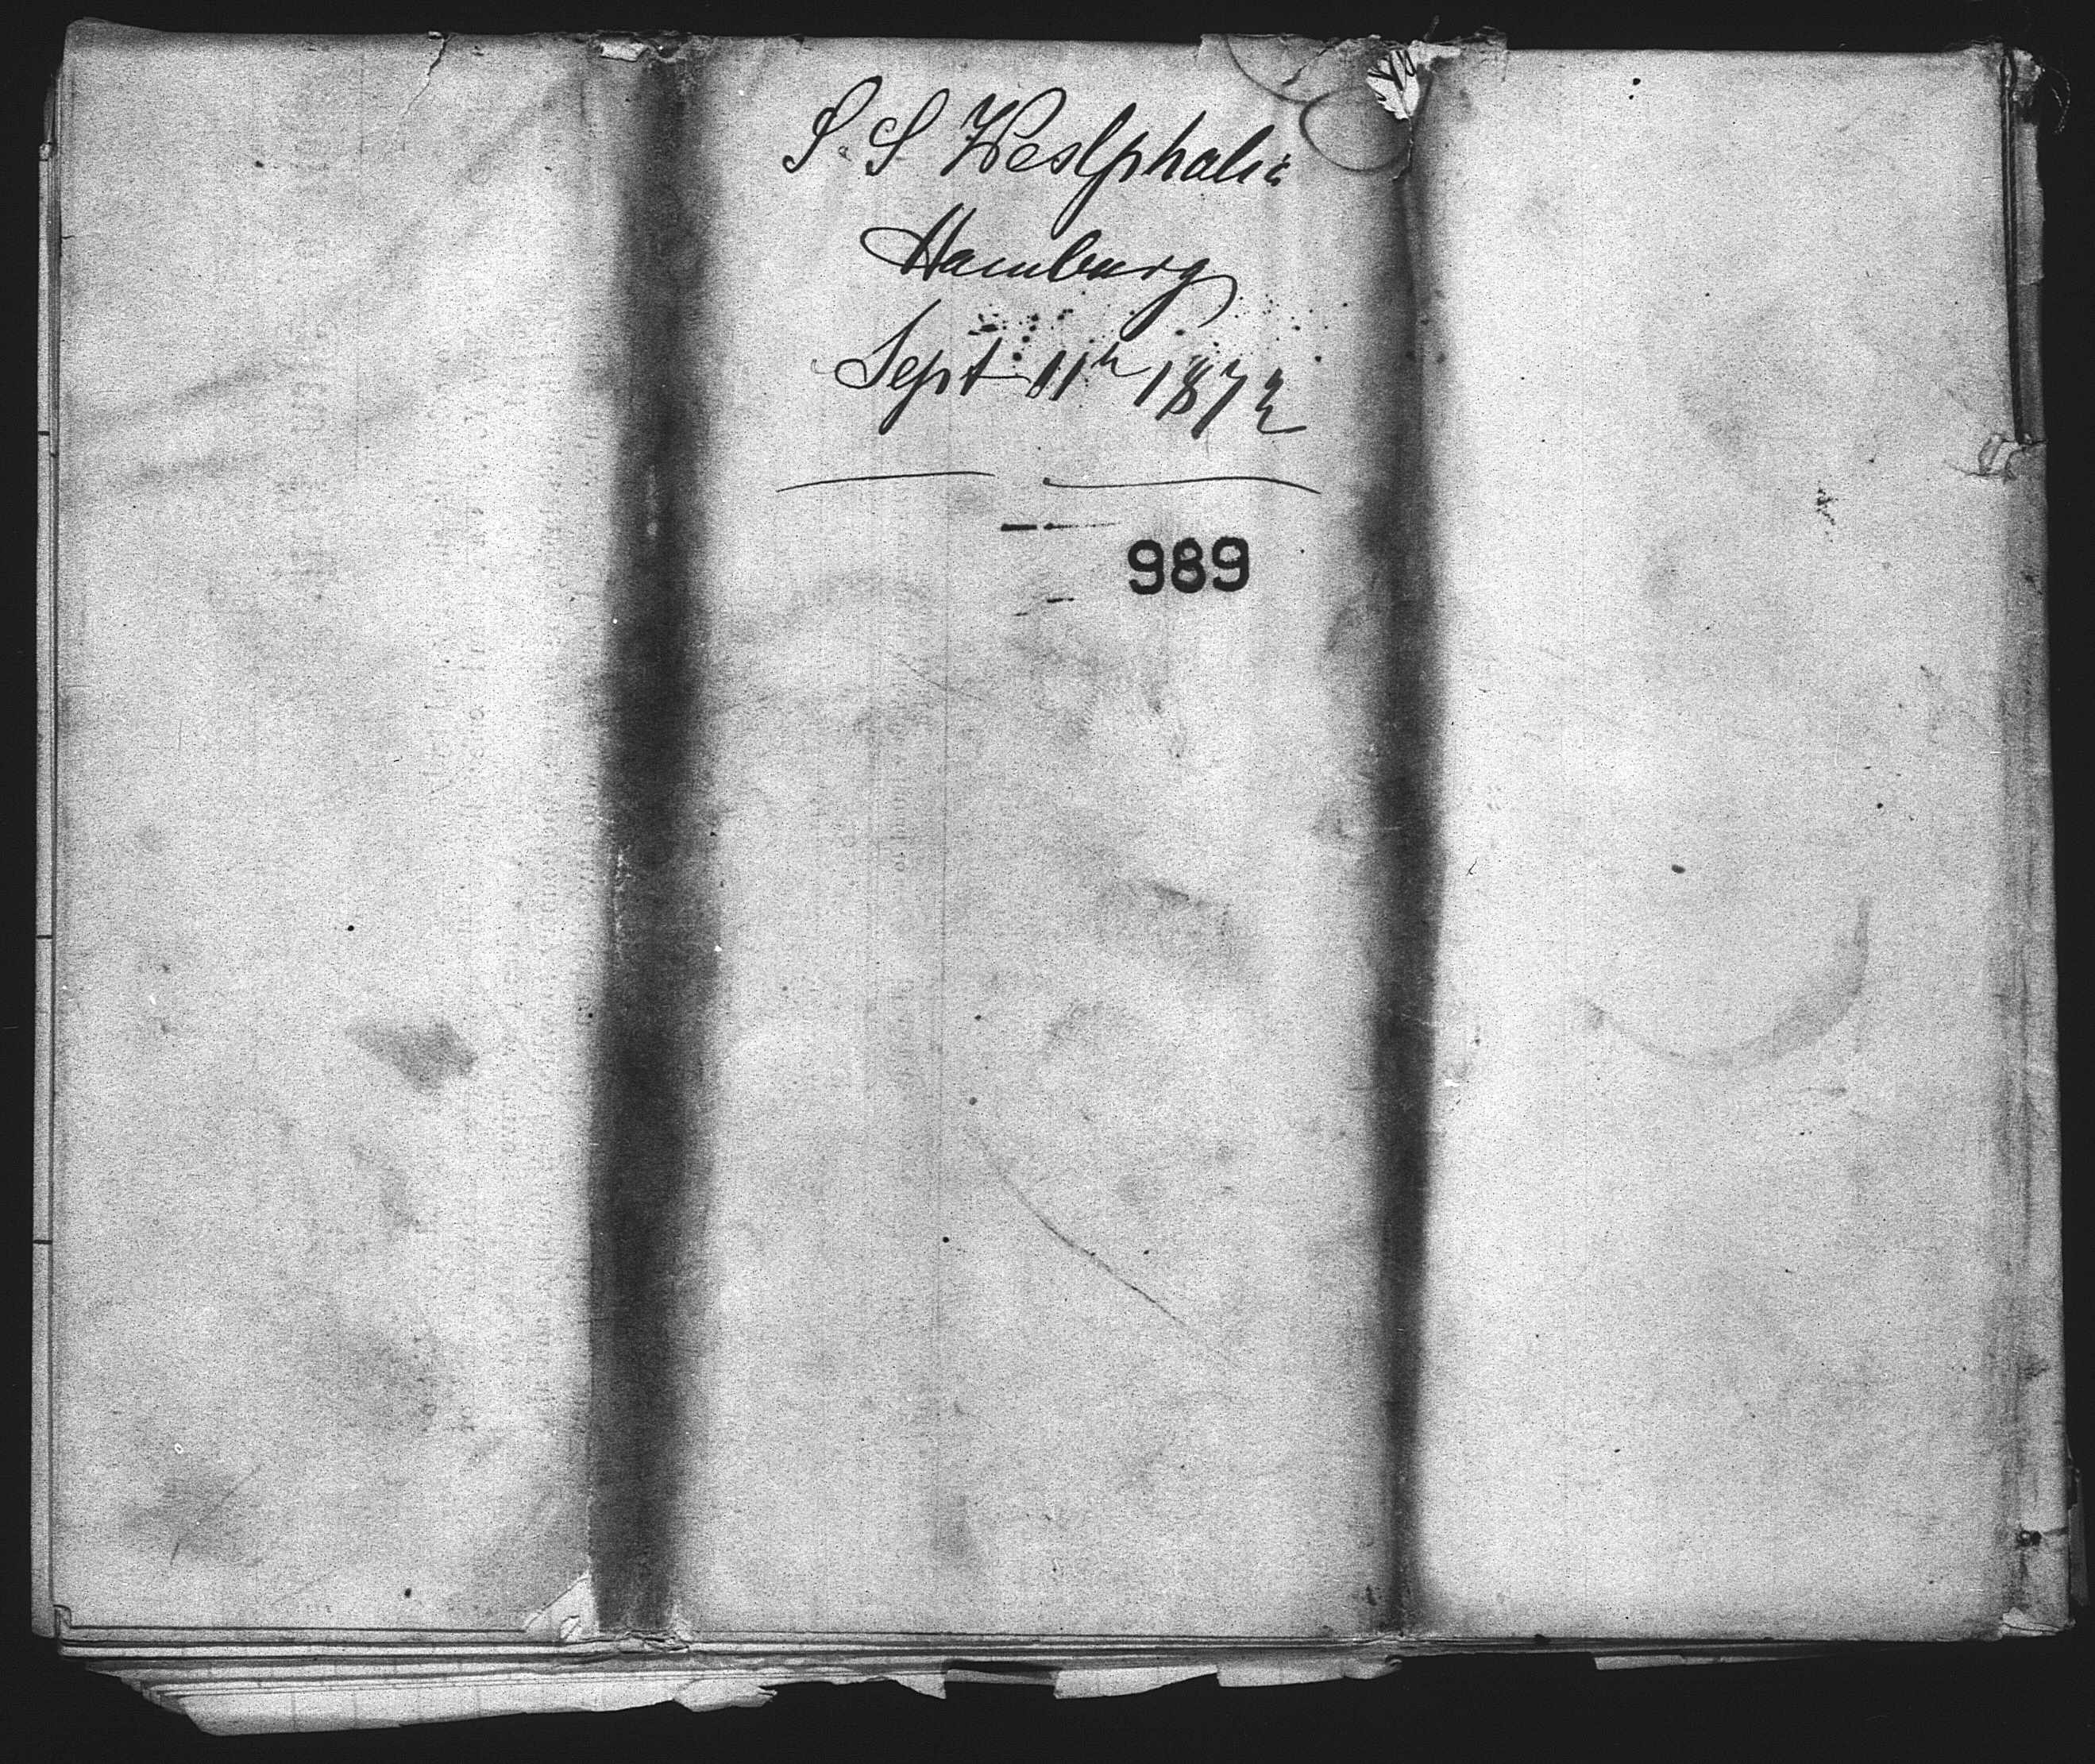 S.S Westphalia
Hamburg
Sept 11th 1872
989